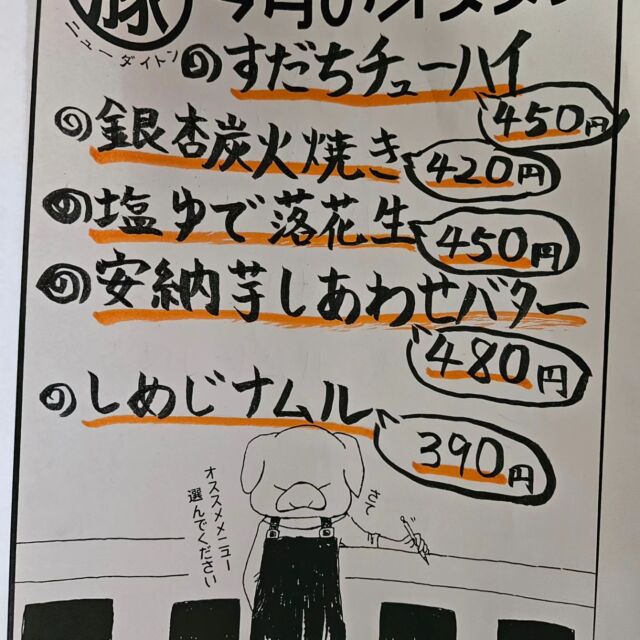 豚
今月のオススメ
ニューダイトン
すだちチューハイ
450円
銀杏炭火焼き
420円
塩ゆで落花生
450円
安納芋しあわせバター
480円
しめじナムル
390円
さて
オススメメニュー
選んでください